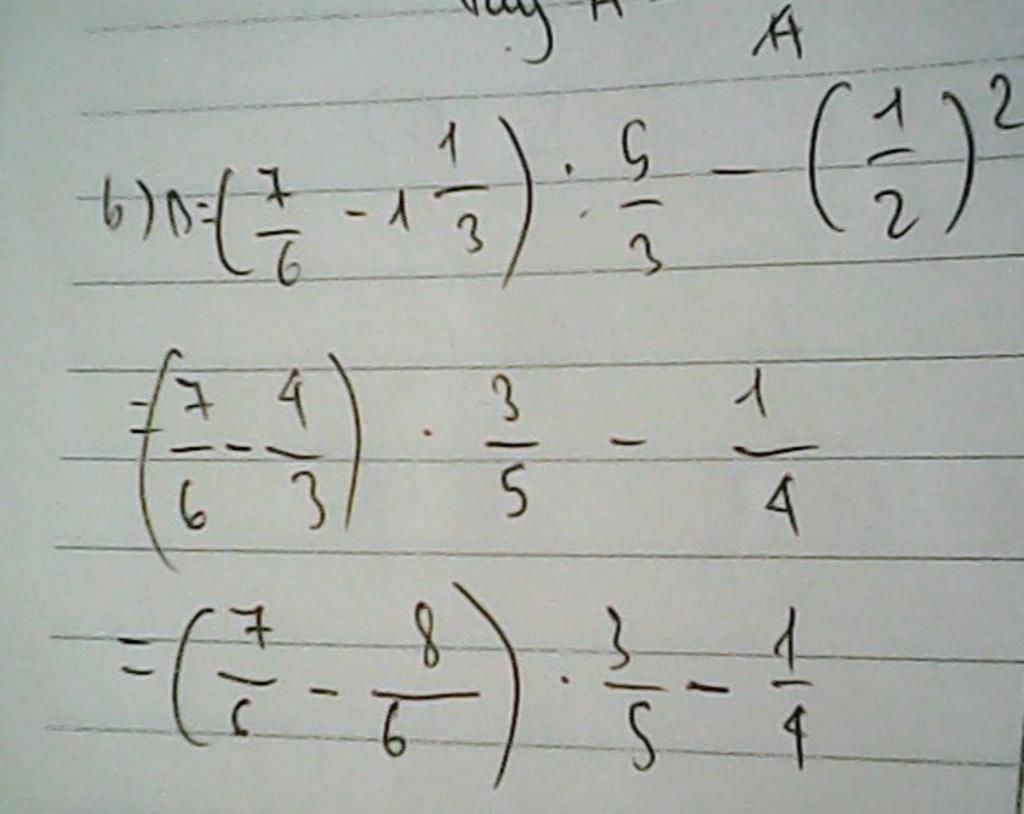 A
b) B = (7/6 - 1 1/3) : 5/3 - (1/2)²
= (7/6 - 4/3) . 3/5 - 1/4
= (7/6 - 8/6) . 3/5 - 1/4